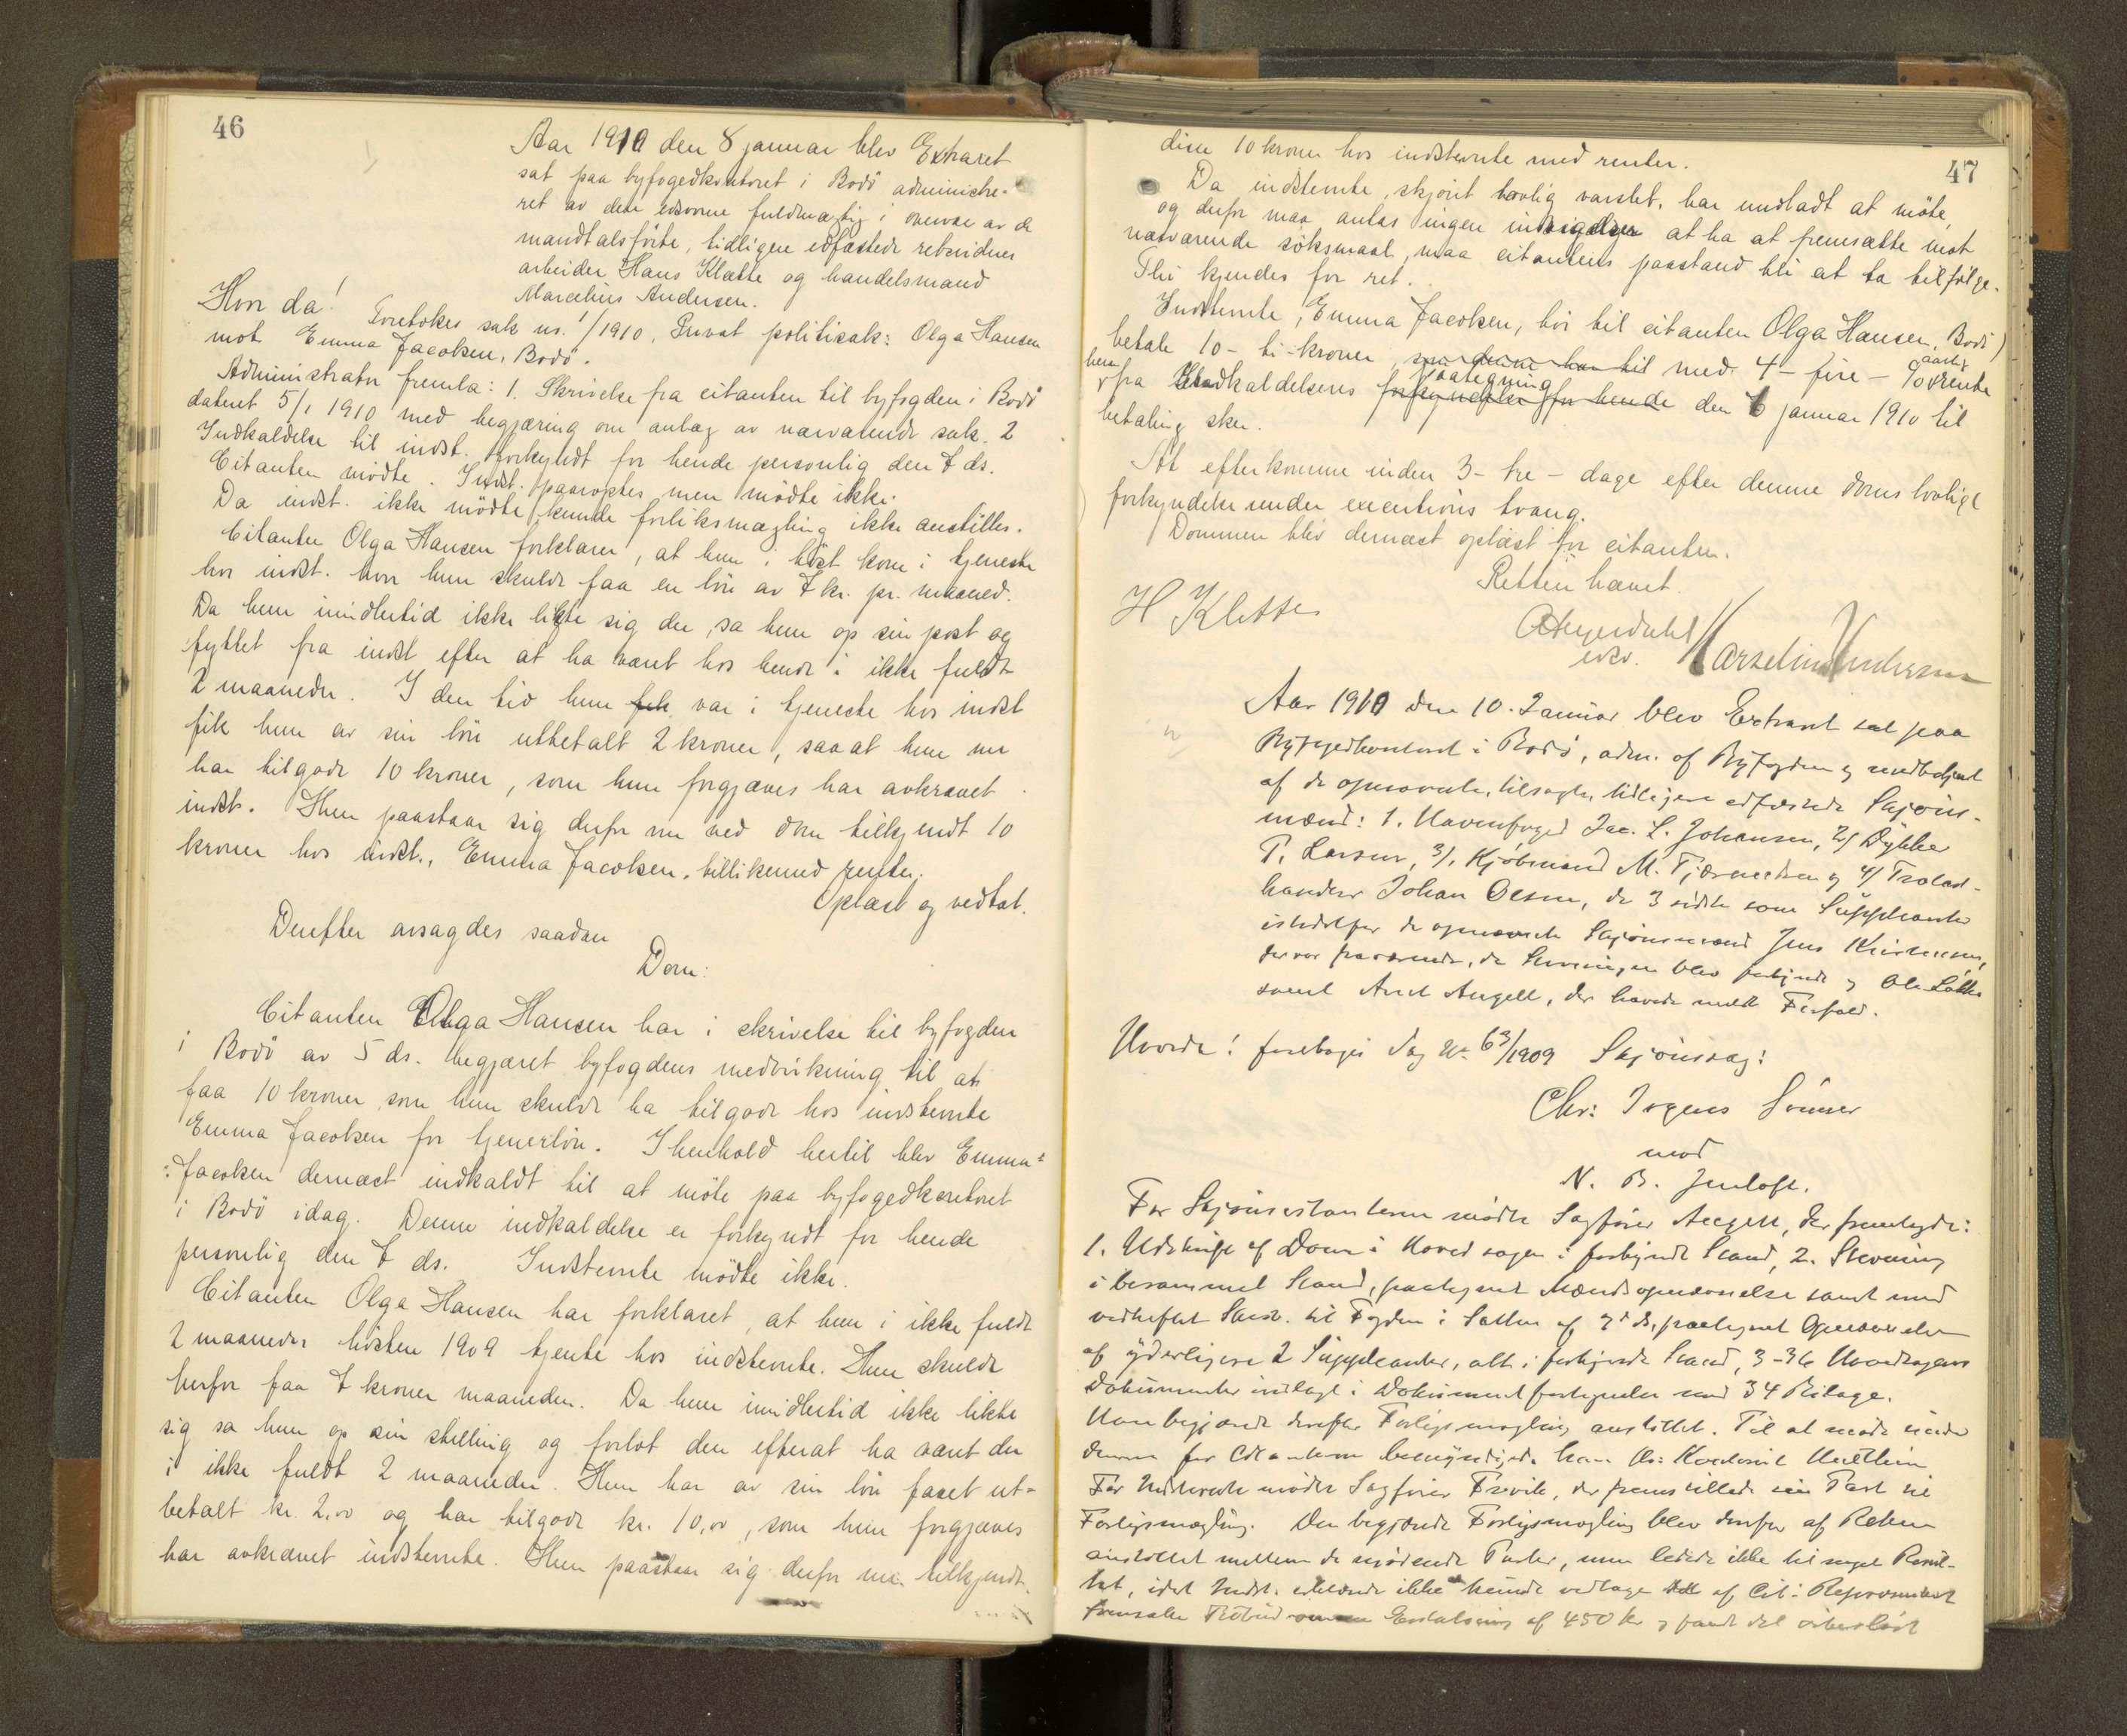 46
Aar 1910 den 8 januar blev Extraret
sat paa byfogedkontoret i Bodö administre-
ret av den edsvorne fuldmægtig i overvær av de
mandtalsförte, tidligere edfæstede retsvidner
arbeider Hans Klætte og handelsmand
Marcelius Andersen.
Hvor da!
Foretokes sak nr. 1/1910, Privat politisak: Olga Hansen
mot Emma Jacobsen, Bodö.
Administrator fremla: 1. Skrivelse fra citanten til byfogden i Bodö
dateret 5/1 1910 med begjæring om anlæg av nærværende sak. 2
Indkaldelse til indst. forkyndt for hende personlig den 7 ds.
Citanten mödte. Indst. paaroptes men mödte ikke.
Da indst. ikke mödte kunde forliksmægling ikke anstilles.
Citanten Olga Hansen forklarer, at hun i höst kom i tjeneste
hos indst. hvor hun skulde faa en lön av 7 kr. pr. maaned.
Da hun imidlertid ikke likte sig der, sa hun op sin post og
flyttet fra indst efter at ha været hos hende i ikke fuldt
2 maaneder. I den tid hun fik var i tjeneste hos indst
fik hun av sin lön utbetalt 2 kroner, saa at hun nu
har tilgode 10 kroner, som hun forgjæves har avkrævet
indst. Hun paastaar sig derfor nu ved dom tilkjendt 10
kroner hos indst., Emma Jacobsen, tillikemed renter.
Oplæst og vedtat.
Derefter avsagdes saadan
Dom:
Citanten Olga Hansen har i skrivelse til byfogden
i Bodö av 5 ds. begjæret byfogdens medvirkning til at
faa 10 kroner som hun skulde ha tilgode hos indstevnte
Emma Jacobsen for tjenerlön. I henhold hertil blev Emma
Jacobsen dernæst indkaldt til at möte paa byfogedkontoret
i Bodö idag. Denne indkaldelse er forkyndt for hende
personlig den 7 ds. Indstevnte mödte ikke.
Citanten Olga Hansen har forklaret, at hun i ikke fuldt
2 maaneder hösten 1909 tjente hos indstevnte. Hun skulde
herfor faa 7 kroner maaneden. Da hun imidlertid ikke likte
sig sa hun op sin stilling og forlot den efterat ha været der
i ikke fuldt 2 maaneder. Hun har av sin lön faaet ut-
betalt kr. 2,00 og har tilgode kr. 10,00, som hun forgjæves
har avkrævet indstevnte. Hun paastaar sig derfor nu tilkjendt
47
disse 10 kroner hos indstevnte med renter.
Da indstevnte, skjönt lovlig varslet, har undladt at möte,
og derfor maa antas ingen indsigelser at ha at fremsætte mot
nærværende söksmaal, maa citantens paastand bli at ta tilfölge.
Thi kjendes for ret.
Indstevnte, Emma Jacobsen, bör til citanten Olga Hansen, Bodö
betale 10 - ti - kroner med 4 - fire - % aarlig rente
herav fra Indkaldelsens paategning forkyndelse for hende den 6 januar 1910 til
betaling sker.
At efterkomme inden 3 - tre - dage efter denne doms lovlige
forkyndelse under executions tvang.
Dommen blev dernæst oplæst for citanten.
Retten hævet.
H Klette
edsv.
Marselius Andersen
Aar 1910 den 10. Januar blev Extraret sat paa
Byfogedkontoret i Bodö, adm. af Byfogden og medbetjent
af de opnævnte, tilsagte, tidligere edfæstede Skjöns-
mænd: 1. Havnefoged Jac. L. Johansen, 2/ Dykker
P. Larsen, 3/. Kjöbmand M. Tjærandsen og 4/ Trælast-
handler Johan Olsen, de 3 sidste som Suppleanter
istedetfor de opnævnte Skjönsmænd Jens Kristensen,
der var fraværende, da Stevningen blev forkyndt og Ole Lökke
samt Arnt Angell, der havde meldt Forfald.
Hvorda! foretoges Sag No 63/1909 Skjönssag:
Chr: Jogens Sönner
mod
N. B. Jenloft.
For Skjönscitanterne mödte Sagförer Angell, der fremlagde:
1. Udskrift af Dom i Hovedsagen i forkyndt Stand, 2. Stevning
i berammet Stand, paategnet Mændsopnævnelse samt med
vedheftet Skriv. til Fogden i Salten af 7 ds, paategnet Opnævnelse
af yderligere 2 Suppleanter, alt i forkyndt Stand, 3-36 Hovedsagens
Dokumenter indlagt i Dokumentfortegnelse med 34 Bilage.
Han begjærede derefter Forligsmægling anstillet. Til at möde under
denne for Citanterne bemyndigede han Hr: Kontorist
For Indstevnte mödte Sagförer Frevik, der fremstillede sin Part til
Forligsmægling. Den begjærede Forligsmægling blev derefter af Retten
anstillet mellem de mödende Parter, men ledede ikke til noget Resul-
tat, idet Indst. erklærede ikke at kunde vedtage det af Cit: Repræsentant
fremsatte Tilbud om en Erstatning af 450 kr og fandt det